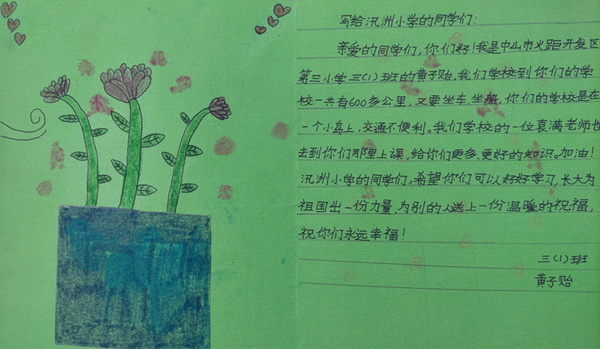 写给汛洲小学的同学们:
亲爱的同学们,你们好!我是中山市火距开发区
第三小学三(1)班的黄子贻,我们学校到你们的学
校一共有600多公里,又要坐车,坐船,你们的学校是在
一个小岛上,交通不便利。我们学校的一位袁满老师也
去到你们那里上课,给你们更多、更好的知识。加油!
汛洲小学的同学们,希望你们可以好好学习,长大为
祖国出一份力量,为别的人送上一份温暖的祝福,
祝你们永远幸福!
三(1)班
黄子贻